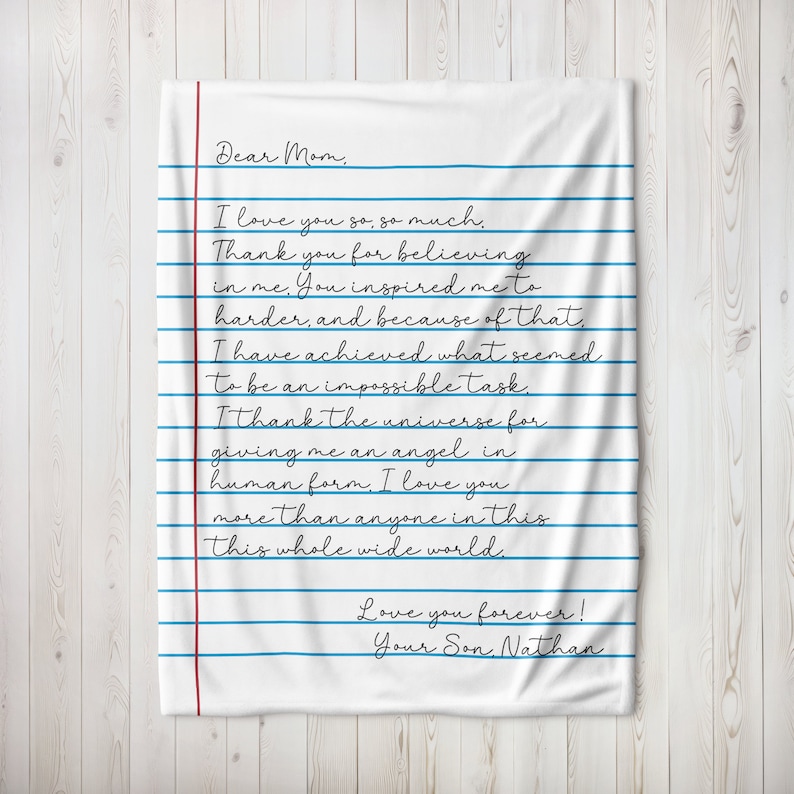 Dear Mom,
I love you so, so much.
Thank you for believing
in me. You inspired me to
harder, and because of that,
I have achieved what seemed
to be an impossible task.
I thank the universe for
giving me an angel in
human form. I love you
more than anyone in this
this whole wide world.
Love you forever!
Your Son, Nathan